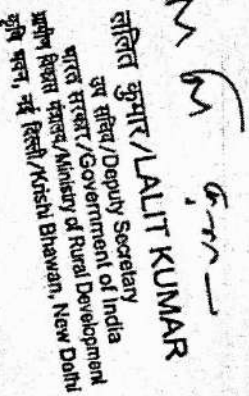 ललित कुमार/LALIT KUMAR
उप सचिव/Deputy Secretary
भारत सरकार/Government of India
ग्रामीण विकास मंत्रालय/Ministry of Rural Development
कृषि भवन, नई दिल्ली/Krishi Bhawan, New Delhi